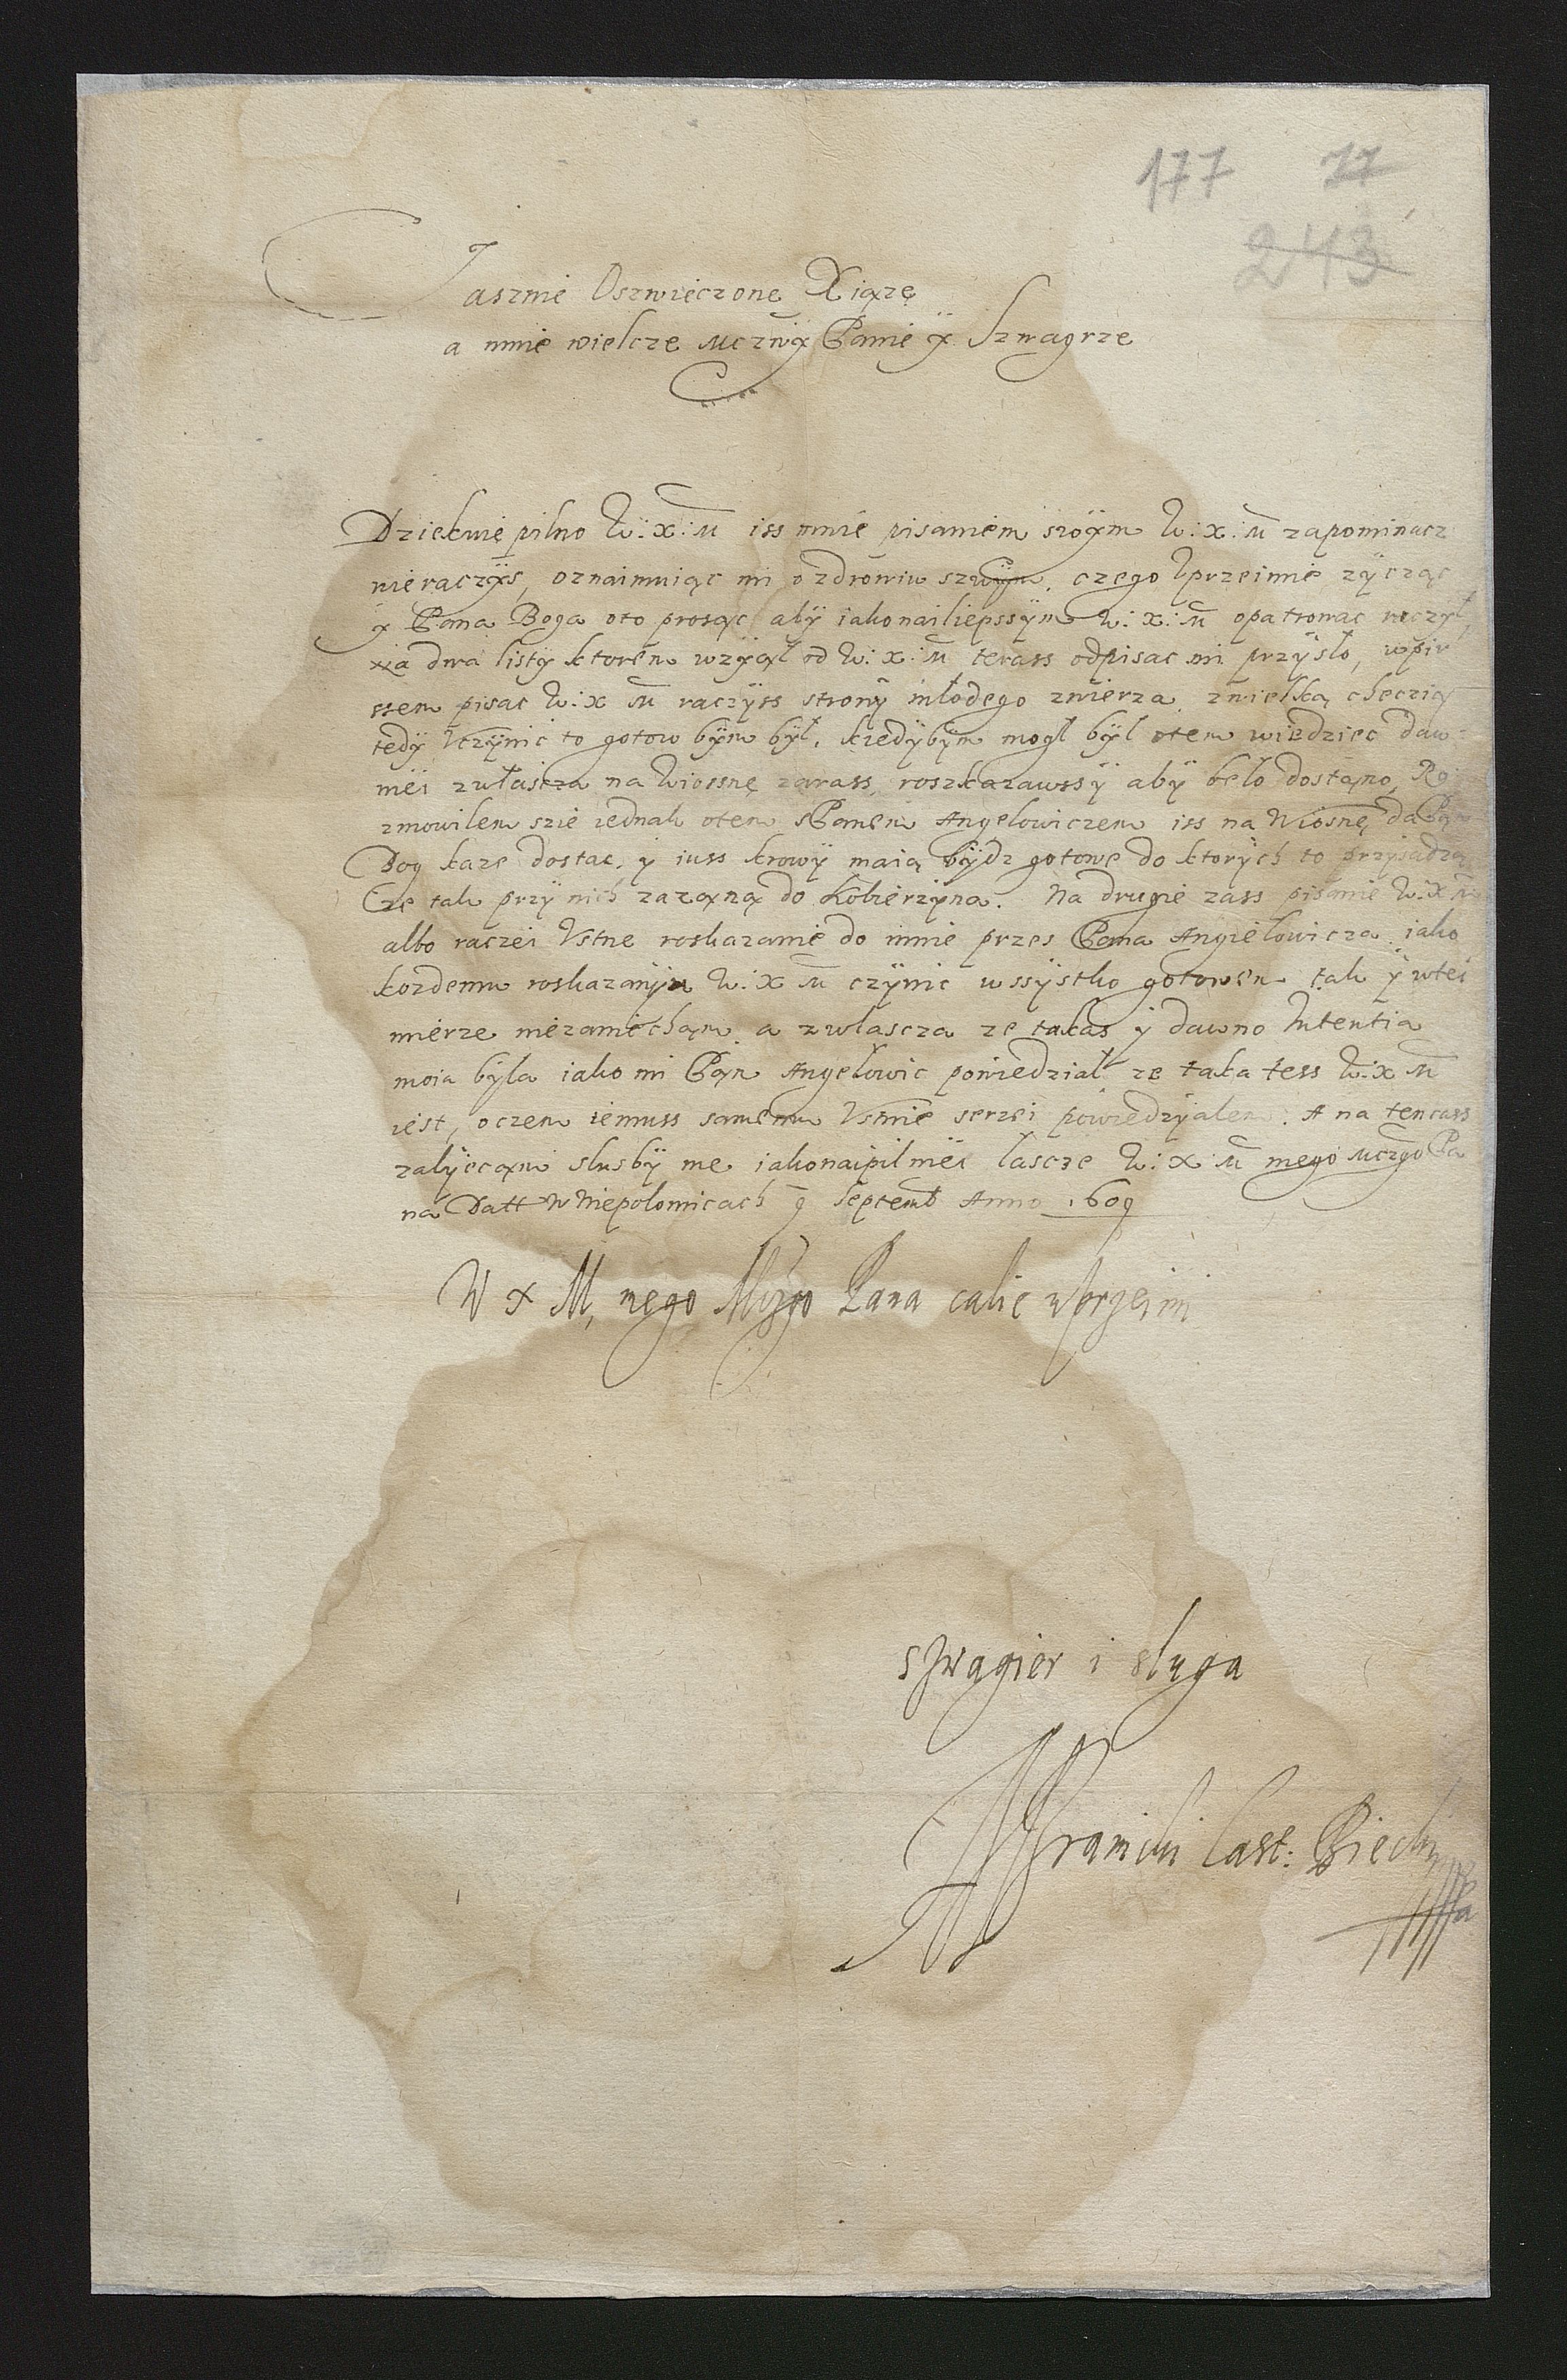 177 77
243
Jasznie Oszwieczone Xiązę
a mnie wielcze Mcziwy Panie y Szwagrze
Dziekuię pilno W: X: M iss mnie pisaniem swoÿm W: X: M zapominacz
nieraczÿs, oznaimuiąc mi o zdrowiu szwÿm, czego Vprzeimie zÿcząc
y Pana Boga oto prosząc abÿ iako nailiepssÿm W: X: M opatrowac raczÿł,
na dwa listÿ ktorem wzÿął od W: X: M terass odpisac mi przÿsło, wpir
ssem pisac W: X M raczÿss stronÿ młodego zwierza, zwielką checzią
tedÿ Vczÿnic to gotow bÿm bÿł, kiedÿbÿm mogł bÿl otem wiedziec daw
niei zwłascza na Wiossnę zarass, roszkazawssÿ abÿ beło dostąno, Ro
zmowilem szie iednak otem sPanem Angelowiczem iss na Wiosnę da Pan
Bog kaze dostac, y iuss krowÿ maią bÿdz gotowe do ktorÿch to przÿsadzą
Ize tak przÿ nich zazoną do Kobierzÿna. Na drugie zass pisanie W: X M
albo raczei Vstne roskazanie do mnie przes Pana Angielowicza, iako
kozdemu roskazanÿu W: X M czÿnic wssÿstko gotowem tak ÿ wtei
mierze niezaniecham, a zwlascza ze takas y dawno Intentia
moia bÿla iako mi Pan Angelowic powiedział ze taka tess W: X M
iest, oczem iemuss samemu Vstnie serzei powiedzÿalem. A na tencass
zalÿecąm slusbÿ me iakonaipilniei lascze W: X: M mego Mczgo Pa
na Datt w Niepolomicach 9 Septemb Anno 1609
W X M, mego Mczgo Pana calie vprzeimi
szwagier i sługa
Branicki Cast: Biecki